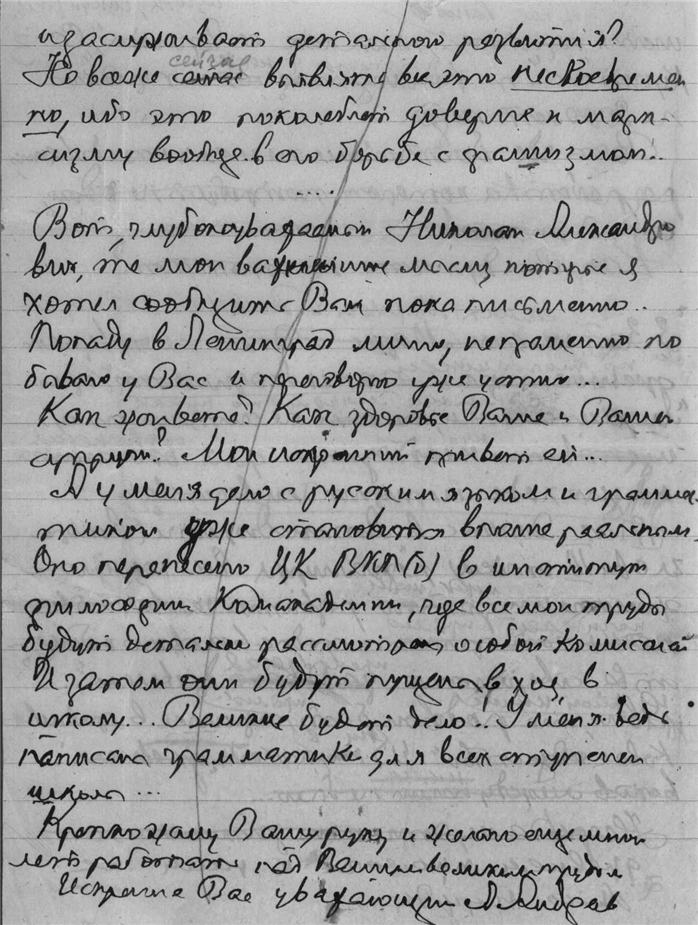 и заслуживает детального развития?
Но всё же сейчас выявлять всё это несвоевремен
но, ибо это поколеблет доверие к марк-
сизму вообще в его борьбе с фашизмом..
.....
Вот, глубокоуважаемый Николай Александро
вич, те мои важнейшие мысли которые я
хотел сообщить Вам пока письменно..
Попаду в Ленинград лично, непременно по
бываю у Вас и переговорю уже устно...
Как живёте? Как здоровье Ваше и Вашей
супруги? Мой искренний привет ей...
А у меня дело с русским языком и грамма
тикой уже становится вполне реальным.
Оно перенесено ЦК ВКП(б) в институт
философии Комакадемии, где все мои труды
будут детально рассмотрены особой комиссией
И затем они будут пущены в ход в
школу... Великое будет дело!. У меня ведь
написана грамматика для всех ступеней
школы...
Крепко жму Вашу руку и желаю ещё много
лет работать над Вашим великим трудом
Искренне Вас уважающий